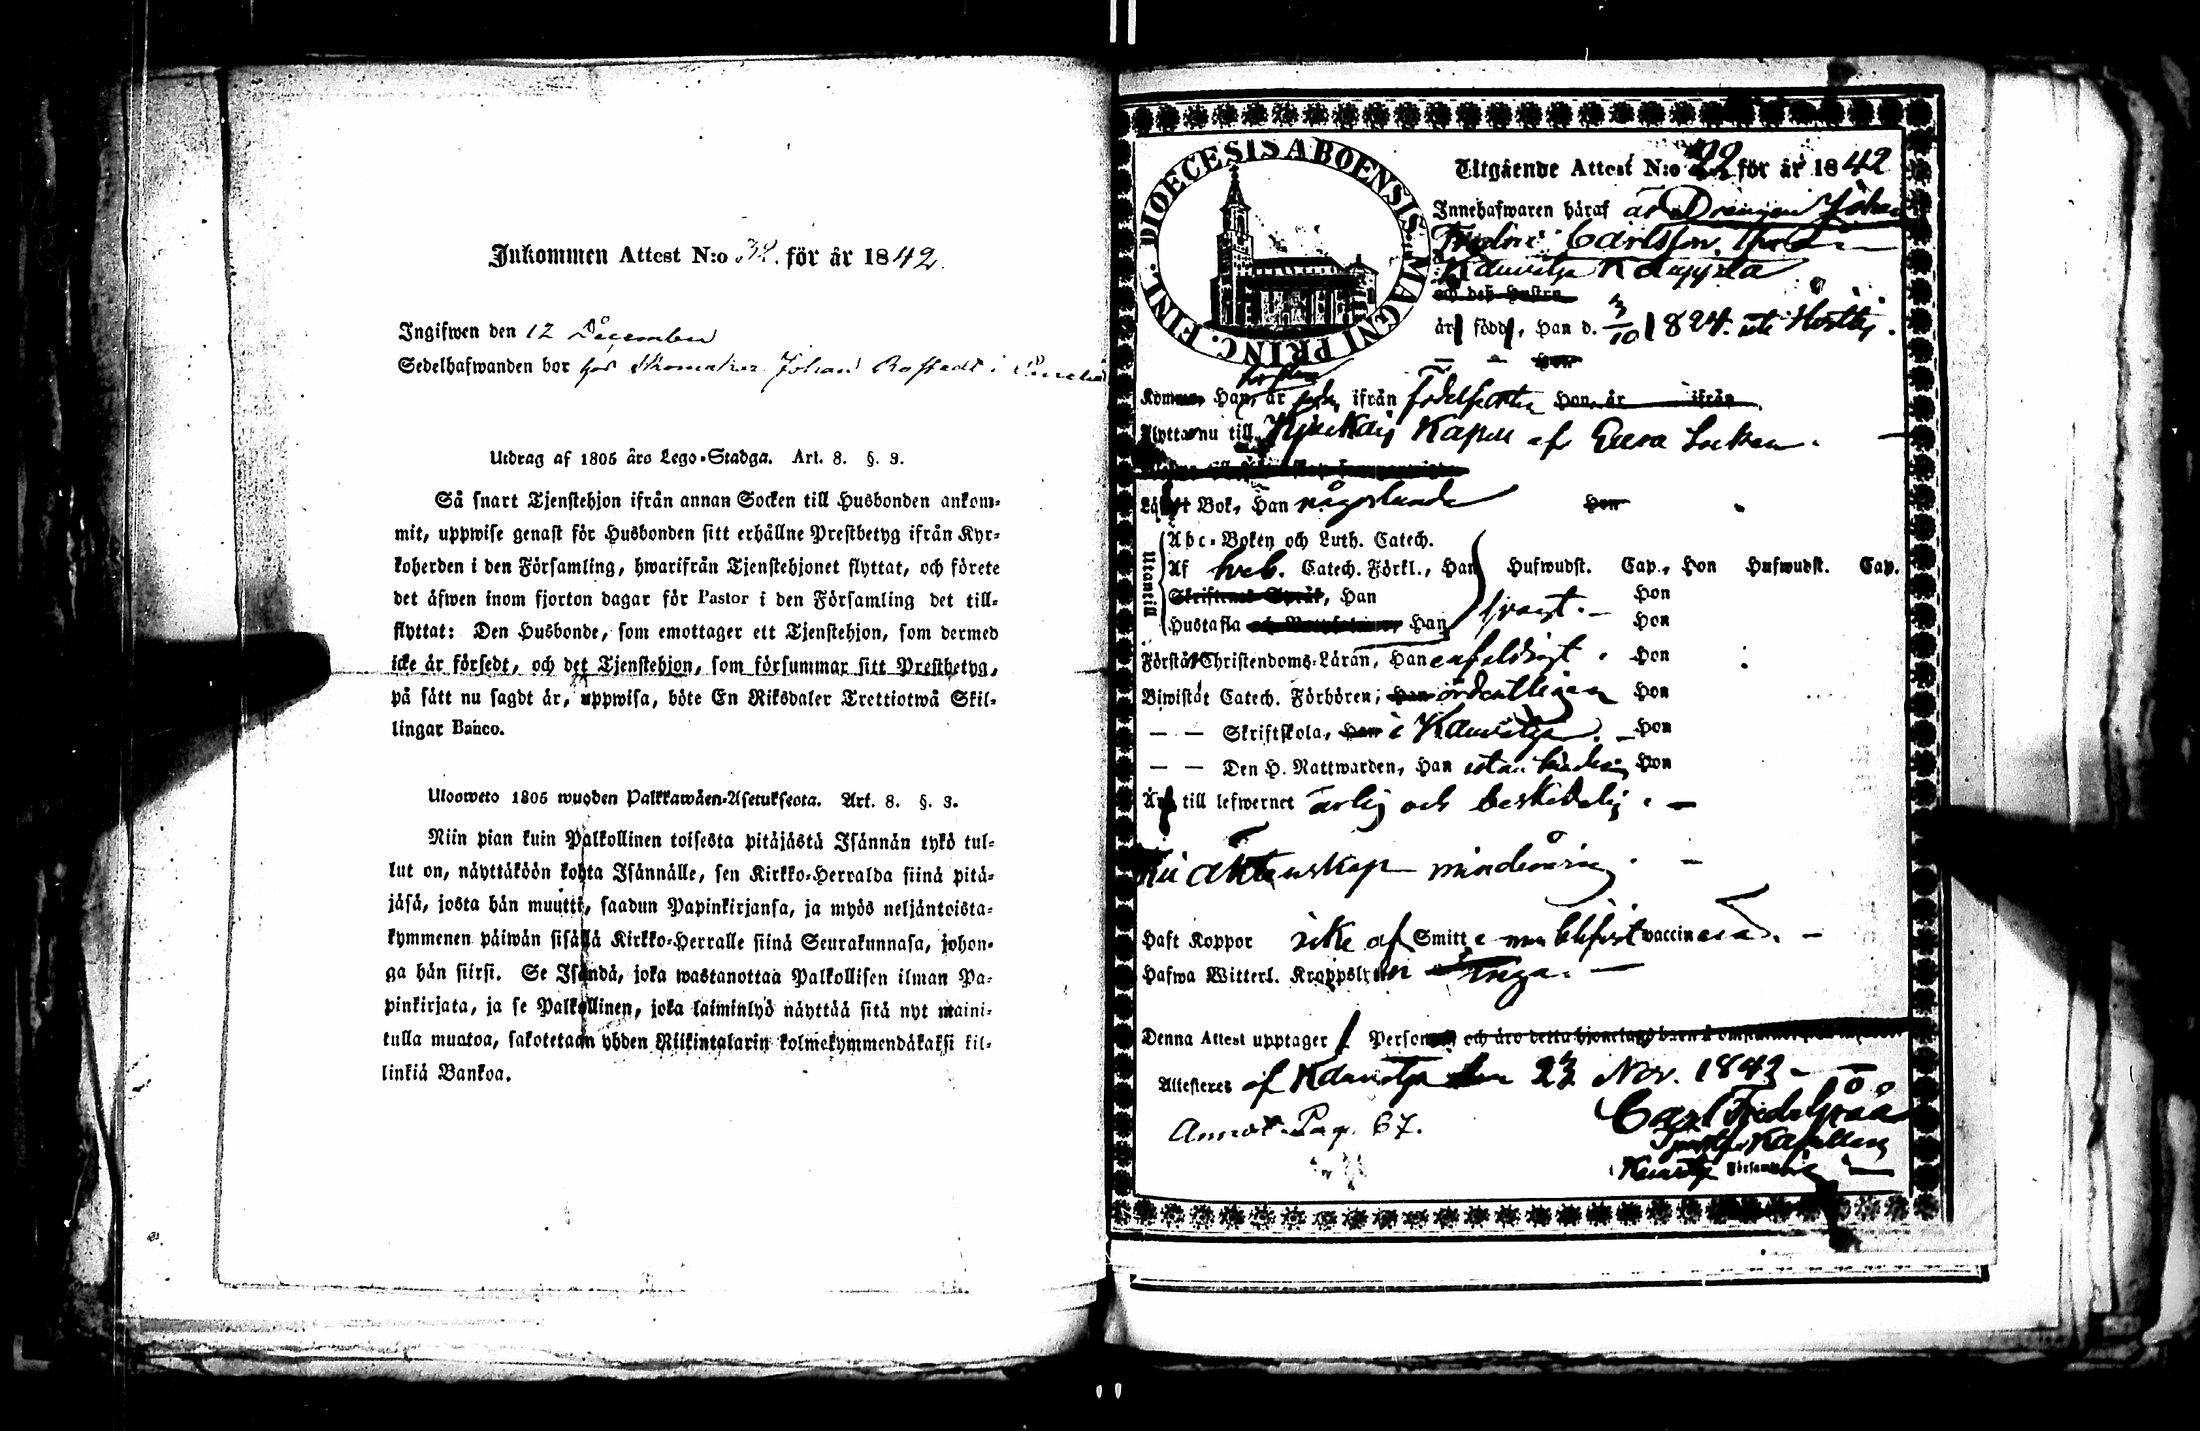 Inkommen Attest N:o 34. för år 1842.
Ingifwen den 12 December
Sedelhafwanden bor hos Skomakar Johan
Utdrag af 1805 års Lego-Stadga. Art. 8. §. 3.
Så snart Tjenstehjon ifrån annan Socken till Husbonden ankom-
mit, uppwise genast för Husbonden sitt erhållne Prestbetyg ifrån Kyr-
koherden i den Församling, hwarifrån Tjenstehjonet flyttat, och förete
det äfwen inom fjorton dagar för Pastor i den Församling det till-
flyttat: Den Husbonde, som emottager ett Tjenstehjon, som dermed
icke är försedt, och det Tjenstehjon, som försummar sitt Prestbetyg,
på sätt nu sagdt är, uppwisa, böte En Riksdaler Trettiotwå Skil-
lingar Banco.
Ulosweto 1805 wuoden Palkkawäen-Asetuksesta. Art. 8. §. 3.
Niin pian kuin Palkollinen toisesta pitäjästä Isännän tykö tul-
lut on, näyttäköön kohta Isännälle, sen Kirkko-Herralda siinä pitä-
jäsä, josta hän muutti, saadun Papinkirjansa, ja myös neljäntoista-
kymmenen päiwän sisällä Kirkko-Herralle siinä Seurakunnasa, johon-
ga hän siirsi. Se Isändä, joka wastanottaa Palkollisen ilman Pa-
pinkirjata, ja se Palkollinen, joka laiminlyö näyttää sitä nyt maini-
tulla muotoa, sakotetaan yhden Riikintalarin kolmekymmendäkaksi kil-
linkiä Bankoa.
DIOECESIS ABOENSIS MAGNI PRINC. FINL.
Utgående Attest N:o 22 för år 1842
Innehafwaren häraf är Drengen Johan
Carlsson
Kauvatsa
och deß Hustru
är född, Han d. 3/10 1824.
Hon
Kommen Han, är ifrån födelseorten Hon, är ifrån
Flyttar nu till Kjulkais Kapell af Eura Socken.
Läser i Bok, Han någorlunda Hon
Utantill
Abc-Boken och Luth. Catech.
Af Sveb. Catech. Förkl., Han Hufwudst. Cap., Hon Hufwudst. Cap.
Skriftenes Språk, Han Hon
Hustafla Han svagt. Hon
Förstår Christendoms-Läran, Han enfaldigt. Hon
Biwistat Catech. Förhören, Han ordentligen Hon
— — Skriftskola, Han i Kauvatsa. Hon
— — Den H. Nattwarden, Han utan hinder Hon
Är till lefwernet ärlig och beskedelig.
Till äktenskap minderårig.
Haft Koppor icke af Smitt vaccinerad.
Hafwa Witterl. Kroppslyten Inga.
Denna Attest upptager 1 Person
Attesteras af Kauvatsa den 23 Nov. 1842
Annot. Pag. 67.
Carl Fredr.
Kapellan
Församling